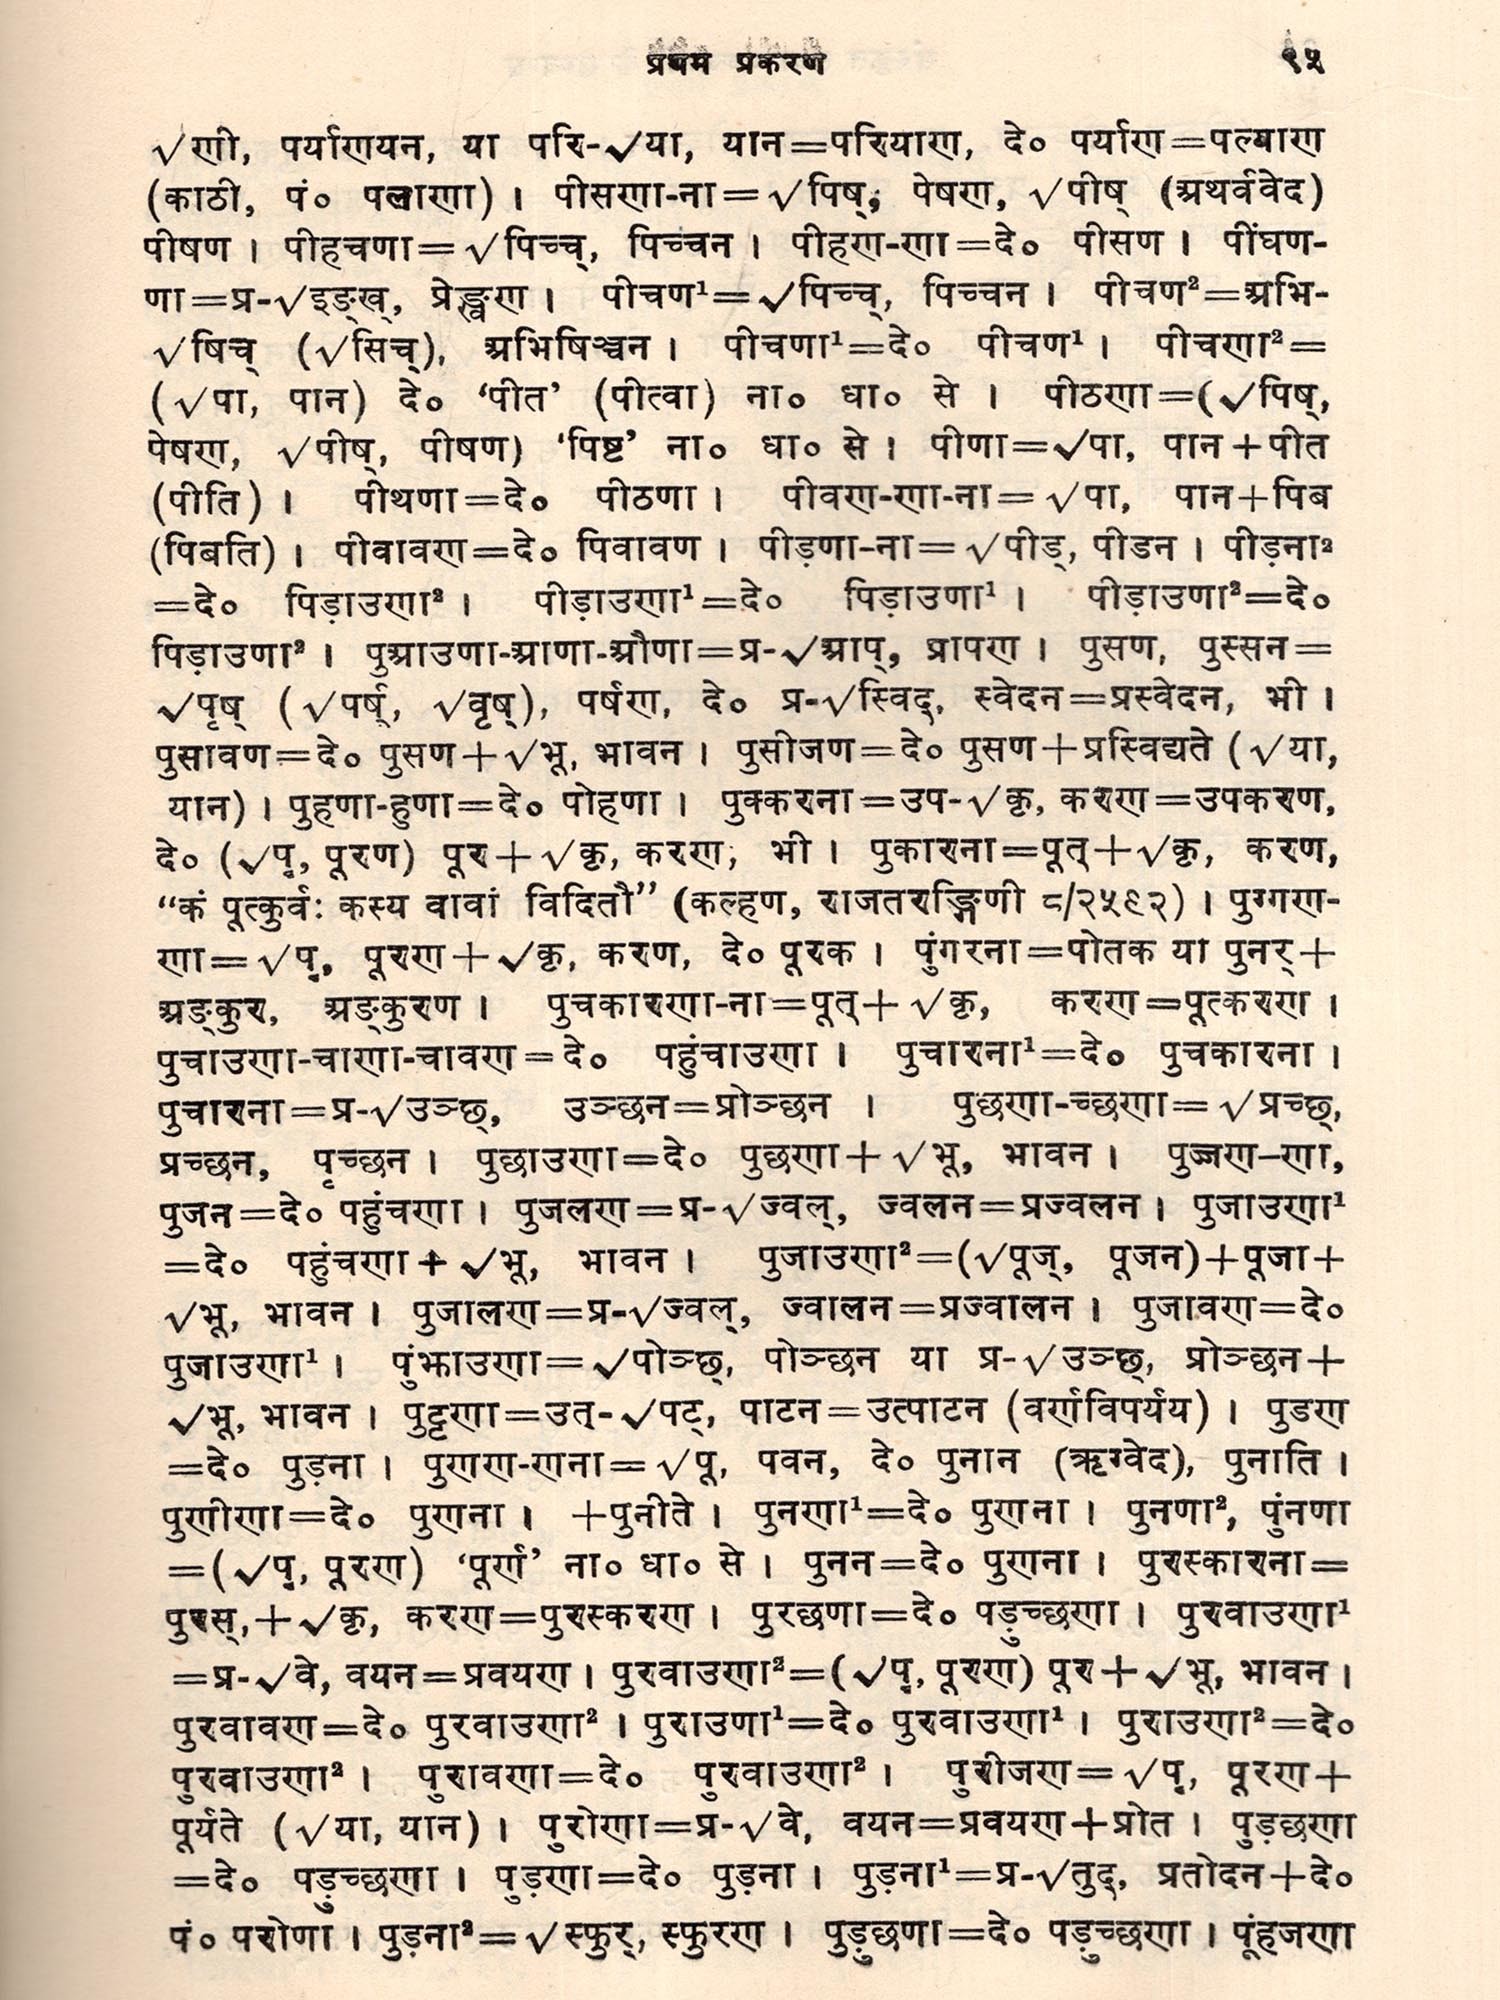 प्रथम प्रकरण ९५
√णी, पर्याणयन, या परि-√या, यान=परियाण, दे० पर्याण=पल्याण
(काठी, पं० पलाणा)। पीसणा-ना=√पिष्; पेषण, √पीष् (अथर्ववेद)
पीषण। पीहचणा=√पिच्च्, पिच्चन। पीहण-णा=दे० पीसण। पींघण-
णा=प्र-√इङ्ख्, प्रेङ्खण। पीचण¹=√पिच्च्, पिच्चन। पीचण²=अभि-
√षिच् (√सिच्), अभिषिञ्चन। पीचणा¹=दे० पीचण¹। पीचणा²=
(√पा, पान) दे० ‘पीत’ (पीत्वा) ना० धा० से। पीठणा=(√पिष्,
पेषण, √पीष्, पीषण) ‘पिष्ट’ ना० धा० से। पीणा=√पा, पान+पीत
(पीति)। पीथणा=दे० पीठणा। पीवण-णा-ना=√पा, पान+पिब
(पिबति)। पीवावण=दे० पिवावण। पीड़णा-ना=√पीड्, पीडन। पीड़ना²
=दे० पिड़ाउणा²। पीड़ाउणा¹=दे० पिड़ाउणा¹। पीड़ाउणा²=दे०
पिड़ाउणा²। पुआउणा-आणा-औणा=प्र-√आप्, प्रापण। पुसण, पुस्सन=
√पृष् (√पर्ष्, √वृष्), पर्षण, दे० प्र-√स्विद्, स्वेदन=प्रस्वेदन, भी।
पुसावण=दे० पुसण+√भू, भावन। पुसीजण=दे० पुसण+प्रस्विद्यते (√या,
यान)। पुहणा-हुणा=दे० पोहणा। पुक्करना=उप-√कृ, करण=उपकरण,
दे० (√पॄ, पूरण) पूर+√कृ, करण, भी। पुकारना=पूत्+√कृ, करण,
“कं पूत्कुर्वः कस्य वावां विदितौ” (कल्हण, राजतरङ्गिणी ८/२५९२)। पुग्गण-
णा=√पॄ, पूरण+√कृ, करण, दे० पूरक। पुंगरना=पोतक या पुनर्+
अङ्कुर, अङ्कुरण। पुचकारणा-ना=पूत्+√कृ, करण=पूत्करण।
पुचाउणा-चाणा-चावण=दे० पहुंचाउणा। पुचारना¹=दे० पुचकारना।
पुचारना=प्र-√उञ्छ्, उञ्छन=प्रोञ्छन। पुछणा-च्छणा=√प्रच्छ्,
प्रच्छन, पृच्छन। पुछाउणा=दे० पुछणा+√भू, भावन। पुज्जण-णा,
पुजन=दे० पहुंचणा। पुजलण=प्र-√ज्वल्, ज्वलन=प्रज्वलन। पुजाउणा¹
=दे० पहुंचणा+√भू, भावन। पुजाउणा²=(√पूज्, पूजन)+पूजा+
√भू, भावन। पुजालण=प्र-√ज्वल्, ज्वालन=प्रज्वालन। पुजावण=दे०
पुजाउणा¹। पुंझाउणा=√पोञ्छ्, पोञ्छन या प्र-√उञ्छ्, प्रोञ्छन+
√भू, भावन। पुट्टणा=उत्-√पट्, पाटन=उत्पाटन (वर्णविपर्यय)। पुडण
=दे० पुड़ना। पुणण-णना=√पू, पवन, दे० पुनान (ऋग्वेद), पुनाति।
पुणीणा=दे० पुणना। +पुनीते। पुनणा¹=दे० पुणना। पुनणा², पुंनणा
=(√पॄ, पूरण) ‘पूर्ण’ ना० धा० से। पुनन=दे० पुणना। पुरस्कारना=
पुरस्,+√कृ, करण=पुरस्करण। पुरछणा=दे० पड़ुच्छणा। पुरवाउणा¹
=प्र-√वे, वयन=प्रवयण। पुरवाउणा²=(√पॄ, पूरण) पूर+√भू, भावन।
पुरवावण=दे० पुरवाउणा²। पुराउणा¹=दे० पुरवाउणा¹। पुराउणा²=दे०
पुरवाउणा²। पुरावणा=दे० पुरवाउणा²। पुरीजण=√पॄ, पूरण+
पूर्यते (√या, यान)। पुरोणा=प्र-√वे, वयन=प्रवयण+प्रोत। पुड़छणा
=दे० पड़ुच्छणा। पुड़णा=दे० पुड़ना। पुड़ना¹=प्र-√तुद्, प्रतोदन+दे०
पं० परोणा। पुड़ना²=√स्फुर्, स्फुरण। पुड़ुछणा=दे० पड़ुच्छणा। पूंहजणा